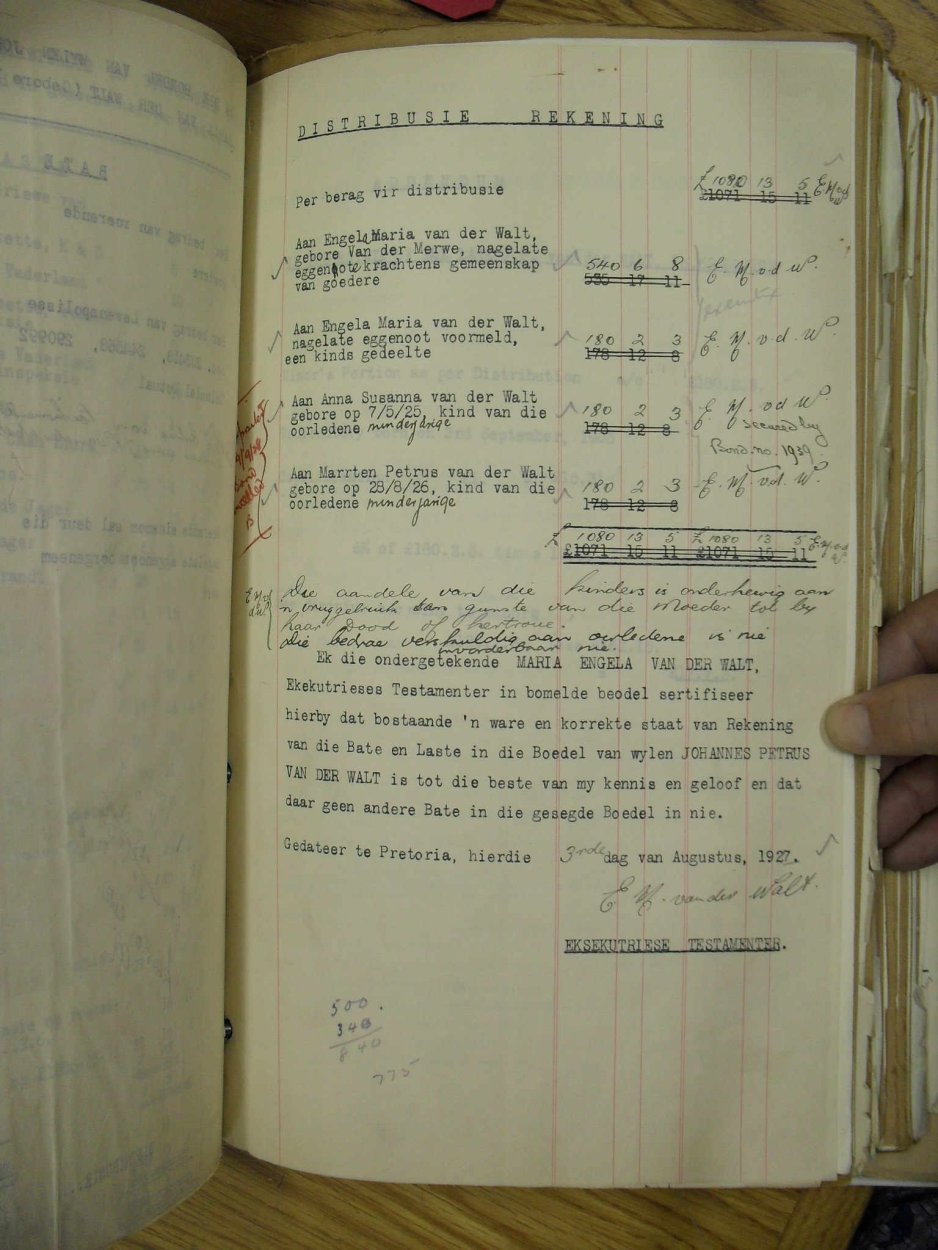 DISTRIBUSIE REKENING
Per berag vir distribusie
£ 1080 13 5
£1071 15 11
Aan Engela Maria van der Walt,
gebore Van der Merwe, nagelate
eggenote krachtens gemeenskap
van goedere
540 6 8 E. M. v d W.
535 17 11
Aan Engela Maria van der Walt,
nagelate eggenoot voormeld,
een kinds gedeelte
180 2 3 E. M. v. d. W.
178 12 8
Aan Anna Susanna van der Walt
gebore op 7/5/25, kind van die
oorledene minderjarige
180 2 3 E. M. v d W.
178 12 8
secured by
Bond no. 1939
Aan Marrten Petrus van der Walt
gebore op 28/8/26, kind van die
oorledene minderjarige
180 2 3 E. M. v. d. W.
178 12 8
£ 1080 13 5 £ 1080 13 5
£1071 15 11 £1071 15 11
Die aandele van die kinders is onderhewig aan
'n vruggebruik ten gunste van die Moeder tot by
haar Dood of hertroue.
die bedrae verskuldig aan oorledene is nie
invorderbaar nie.
Ek die ondergetekende MARIA ENGELA VAN DER WALT,
Ekekutrieses Testamenter in bomelde beodel sertifiseer
hierby dat bostaande 'n ware en korrekte staat van Rekening
van die Bate en Laste in die Boedel van wylen JOHANNES PETRUS
VAN DER WALT is tot die beste van my kennis en geloof en dat
daar geen andere Bate in die gesegde Boedel in nie.
Gedateer te Pretoria, hierdie 3rde dag van Augustus, 1927.
E M. van der Walt.
EKSEKUTRIESE TESTAMENTER.
500.
340
840
775